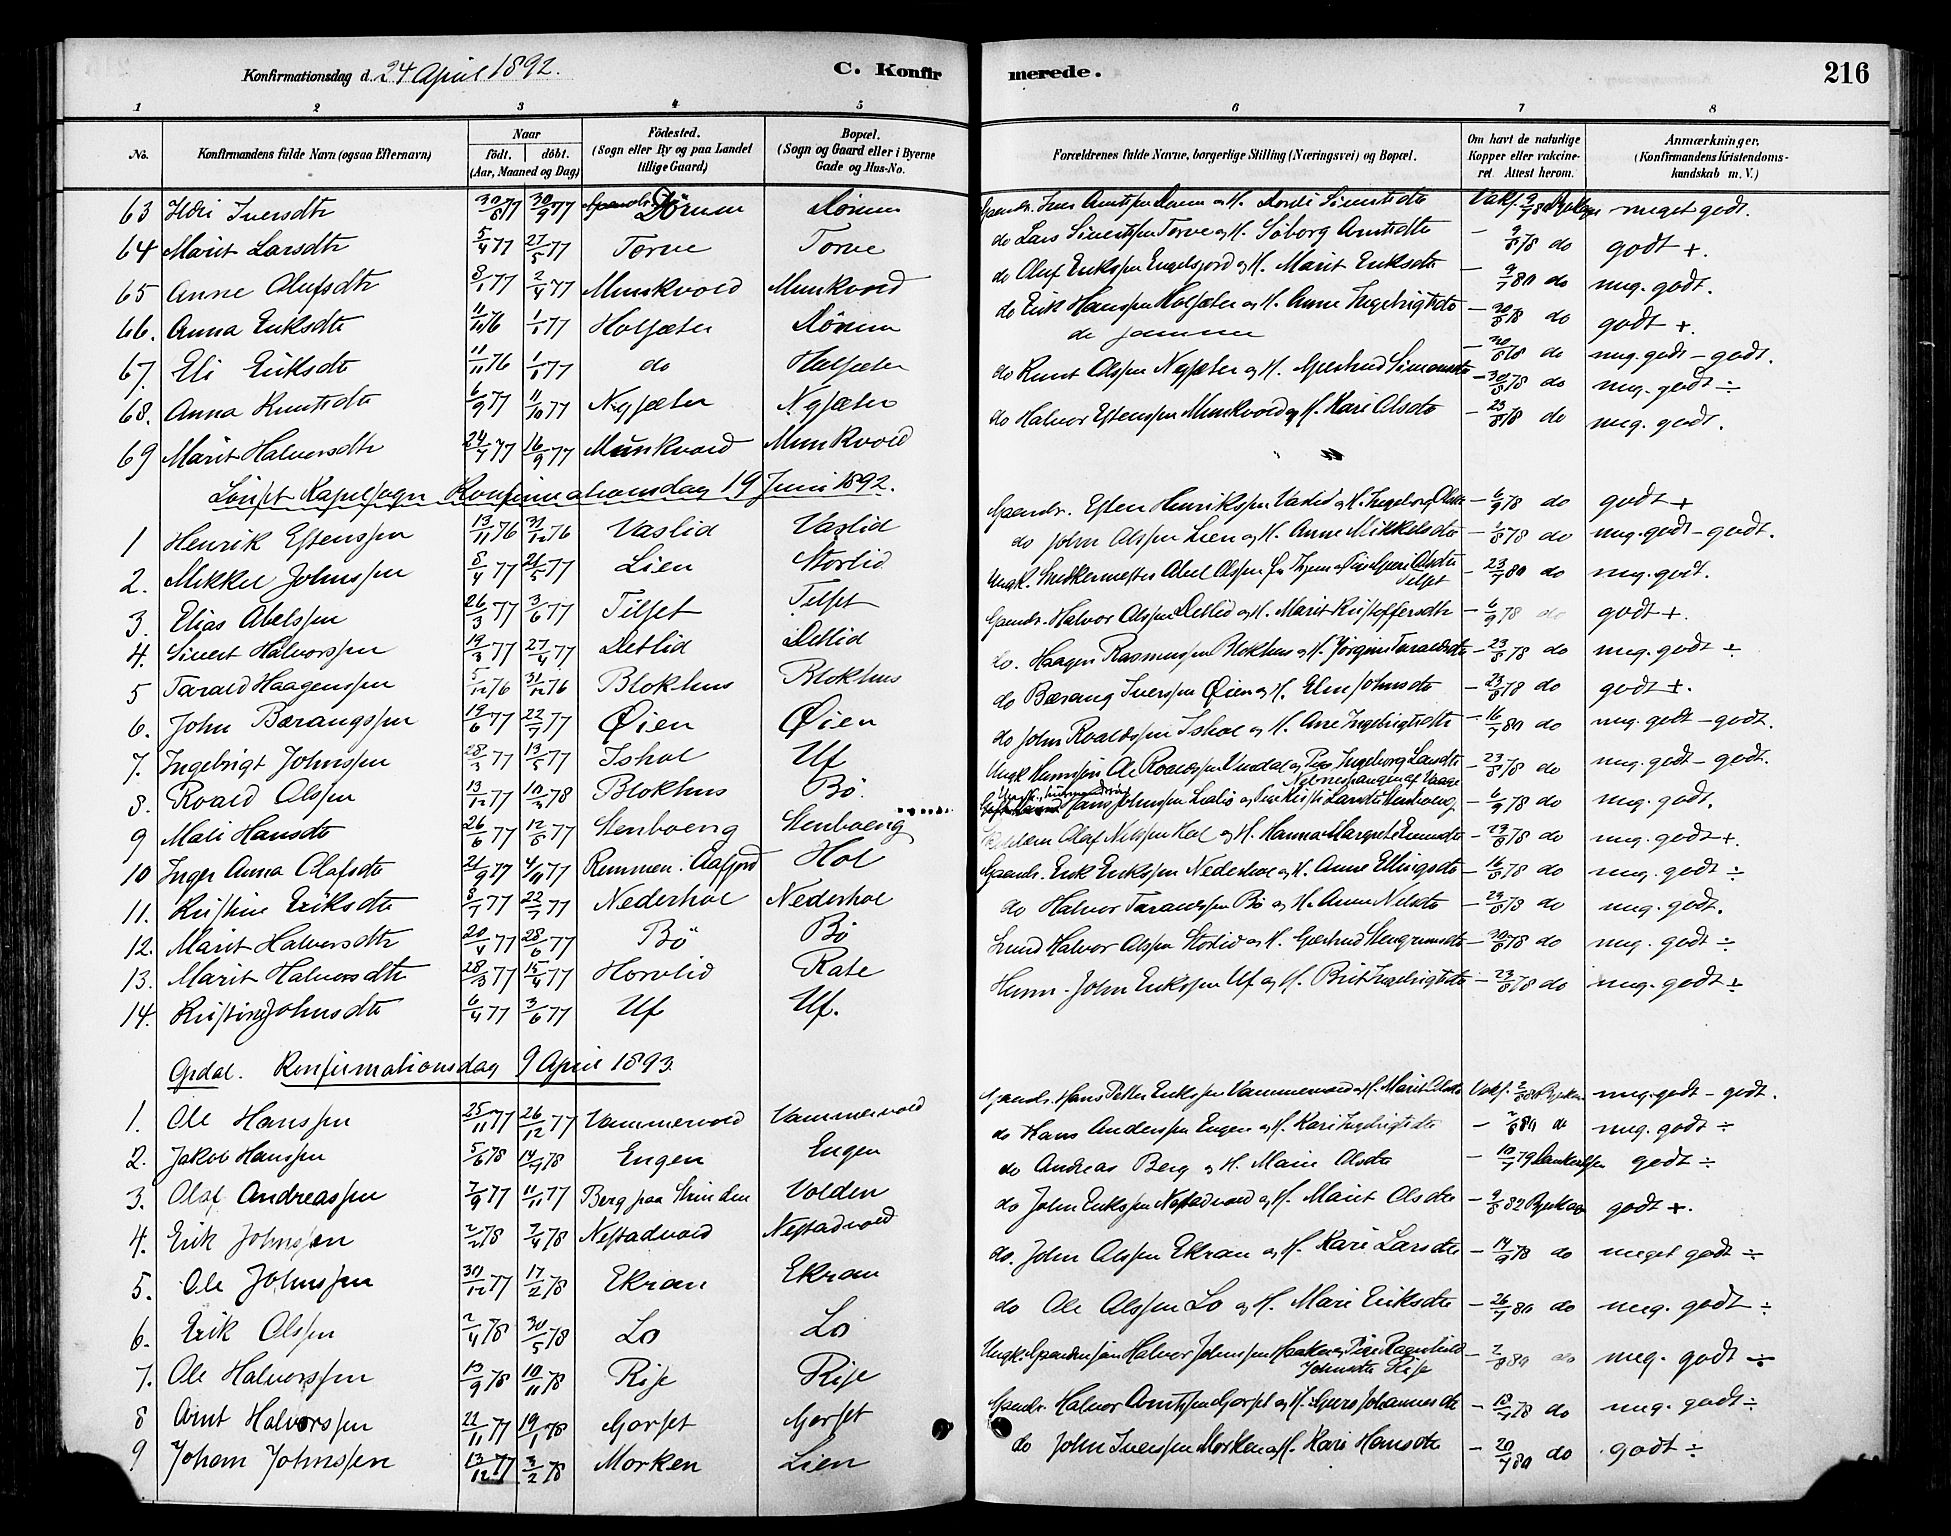 Konfirmationsdag d. 24 April 1892. C. Konfirmerede. 216
1 2 3 4 5 6 7 8
No. Konfirmandens fulde Navn (ogsaa Efternavn) Naar födt. döbt. (Aar, Maaned og Dag) Födested. (Sogn eller By og paa Landet tillige Gaard) Bopæl. (Sogn og Gaard eller i Byerne Gade og Hus-No. Forældrenes fulde Navne, borgerlige Stilling (Næringsvei) og Bopæl. Om havt de naturlige Kopper eller vakcineret. Attest herom. Anmærkninger. (Konfirmandens Kristendomskundskab m. V.)
63 Iversdtr 30/8 77 30/9 77 meget godt.
64 Marit Larsdtr 5/4 77 27/5 77 Torve Torve do Lars Sivertssen Torve og H. Söborg Arntsdtr - 9/8 78 do godt +.
65 Anne Olufsdtr 8/1 77 2/4 77 Munkvold Munkvold do Oluf Erikssen Engelsjord og H. Marit Eriksdtr - 9/7 80 do meg. godt.
66. Anna Eriksdtr 11/11 76 1/1 77 Holsæter do Erik Hanssen Holsæter og H. Anne Ingebrigtsdtr - 30/8 78 do godt +.
67. Eli Eriksdtr 11/11 76 1/1 77 do Holsæter do samme - 30/8 78 do meg. godt - godt.
68. Anna Knutsdtr 6/9 77 11/10 77 Nysæter Nysæter do Knut Olssen Nysæter og H. Gjertrud Simonsdtr - 30/8 78 do meg. godt ÷
69 Marit Halvorsdtr 24/7 77 16/9 77 Munkvold Munkvold do Halvor Estenssen Munkvold og H. Kari Olsdtr - 23/8 78 do meg. godt.
Kapelsogn Konfirmationsdag 19 Juni 1892.
1 Henrik Estenssen 13/11 76 31/12 76 Vaslid Vaslid Gaardbr. Esten Henrikssen Vaslid og H. Ingeborg Olsdtr - 6/9 78 do godt +
2. Mikkel Johnssen 8/4 77 21/5 77 Lien Storlid do John Olssen Lien og H. Anne Mikkelsdtr - 1/8 78 do meg. godt - godt.
3. Elias Abelssen 26/3 77 3/6 77 Tilset Tilset Ungk. Snedkermester Abel Olssen - 23/7 80 do meg. godt.
4. Sivert Halvorssen 19/3 77 27/4 77 Detlid Detlid Gaardbr. Halvor Olssen Detlid og H. Marit Kristoffersdtr - 6/9 78 do godt +.
5 Tarald Haagenssen 5/12 76 31/12 76 Blokhus Blokhus do. Haagen Rasmussen Blokhus og H. Jörgine Taraldsdtr - 23/8 78 do meg. godt ÷
6. John Bærangssen 19/6 77 22/7 77 Øien Øien do Bærang Iverssen Øien og H. Elen Johnsdtr - 23/8 78 do godt +.
7. Ingebrigt Johnssen 28/3 77 13/5 77 Ishol Uf do John Roaldssen Ishol og H. Ane Ingebrigtsdtr - 16/7 80 do meg. godt - godt.
8. Roald Olssen 13/12 77 10/3 78 Blokhus Bö. Ungk. Husmsön Ole Roaldssen Uvsdal og Pige Ingeborg Larsdtr - 23/8 78 do meg. godt - godt.
9 Mali Hansdtr 26/6 77 12/8 77 Stenboeng Stenboeng Hans Johnssen og Pige Kirsti Larsdtr Stenboeng - 6/9 78 do meg. godt.
10 Inger Anna Olafsdtr 21/9 77 4/11 77 Remmen. Aafjord Hol Olaf Nilssen Hol og H. Hanna Margrete Evensdtr - 23/8 78 do meg. godt +.
11. Kristine Eriksdtr 8/7 77 22/7 77 Nederhol Nederhol Gaardbr. Erik Erikssen Nederhol og H. Anne Ellingsdtr - 16/8 78 do meg. godt ÷
12. Marit Halvorsdtr 20/4 77 28/6 77 Bö Bö do Halvor Taraldssen Bö og H. Anne Nilsdtr - 23/8 78 do meg. godt.
13. Marit Halvorsdtr 28/3 77 15/4 77 Horvlid Rate Halvor Olssen Storlid og H. Gjertrud - 30/8 78 do meg. godt ÷
14. Kristine Johnsdtr 6/4 77 3/6 77 Uf Uf. Husm. John Erikssen Uf og H. Brit Ingebrigtsdtr - 23/8 78 do meg. godt ÷
Opdal. Konfirmationsdag 9 April 1893.
1. Ole Hanssen 25/11 77 26/12 77 Vammervold Vammervold Gaardbr. Hans Petter Erikssen Vammervold og H. Marit Olsdtr meg. godt - godt.
2. Jakob Hanssen 5/6 78 14/7 78 Engen Engen do Hans Anderssen Engen og H. Kari Ingebrigtsdtr - 2/8 80 do meg. godt ÷
3. Olaf Andreassen 7/9 77 11/11 77 Berg paa Strinden Volden do Andreas Berg og H. Marie Olsdtr - 10/7 79 godt ÷
4. Erik Johnssen 2/2 78 7/4 78 Nestadvold Nestadvold do John Erikssen Nestadvold og H. Marit Olsdtr - 9/8 82 godt +.
5. Ole Johnssen 30/12 77 17/2 78 Ekran Ekran do. John Olssen Ekran og H. Kari Larsdtr - 14/9 78 do meget godt ÷
6. Erik Olssen 2/4 78 30/5 78 Lo Lo do Ole Olssen Lo og H. Mari Eriksdtr - 26/7 80 do meg. godt ÷
7. Ole Halvorssen 13/9 78 10/11 78 Rise Rise Ungk. Gaardmsön Halvor Johnssen Haaker og Pige Ragnhild Johnsdtr Rise - 2/8 80 do meg. godt ÷
8 Arnt Halvorssen 22/11 77 19/1 78 Gorset Gorset Gaardbr. Halvor Arntssen Gorset og H. Guro Johannesdtr - 12/7 78 do meg. godt ÷
9 Johan Johnssen 13/12 77 3/2 78 Morken Lien do John Iverssen Morken og H. Kari Hansdtr - 20/7 80 do godt ÷